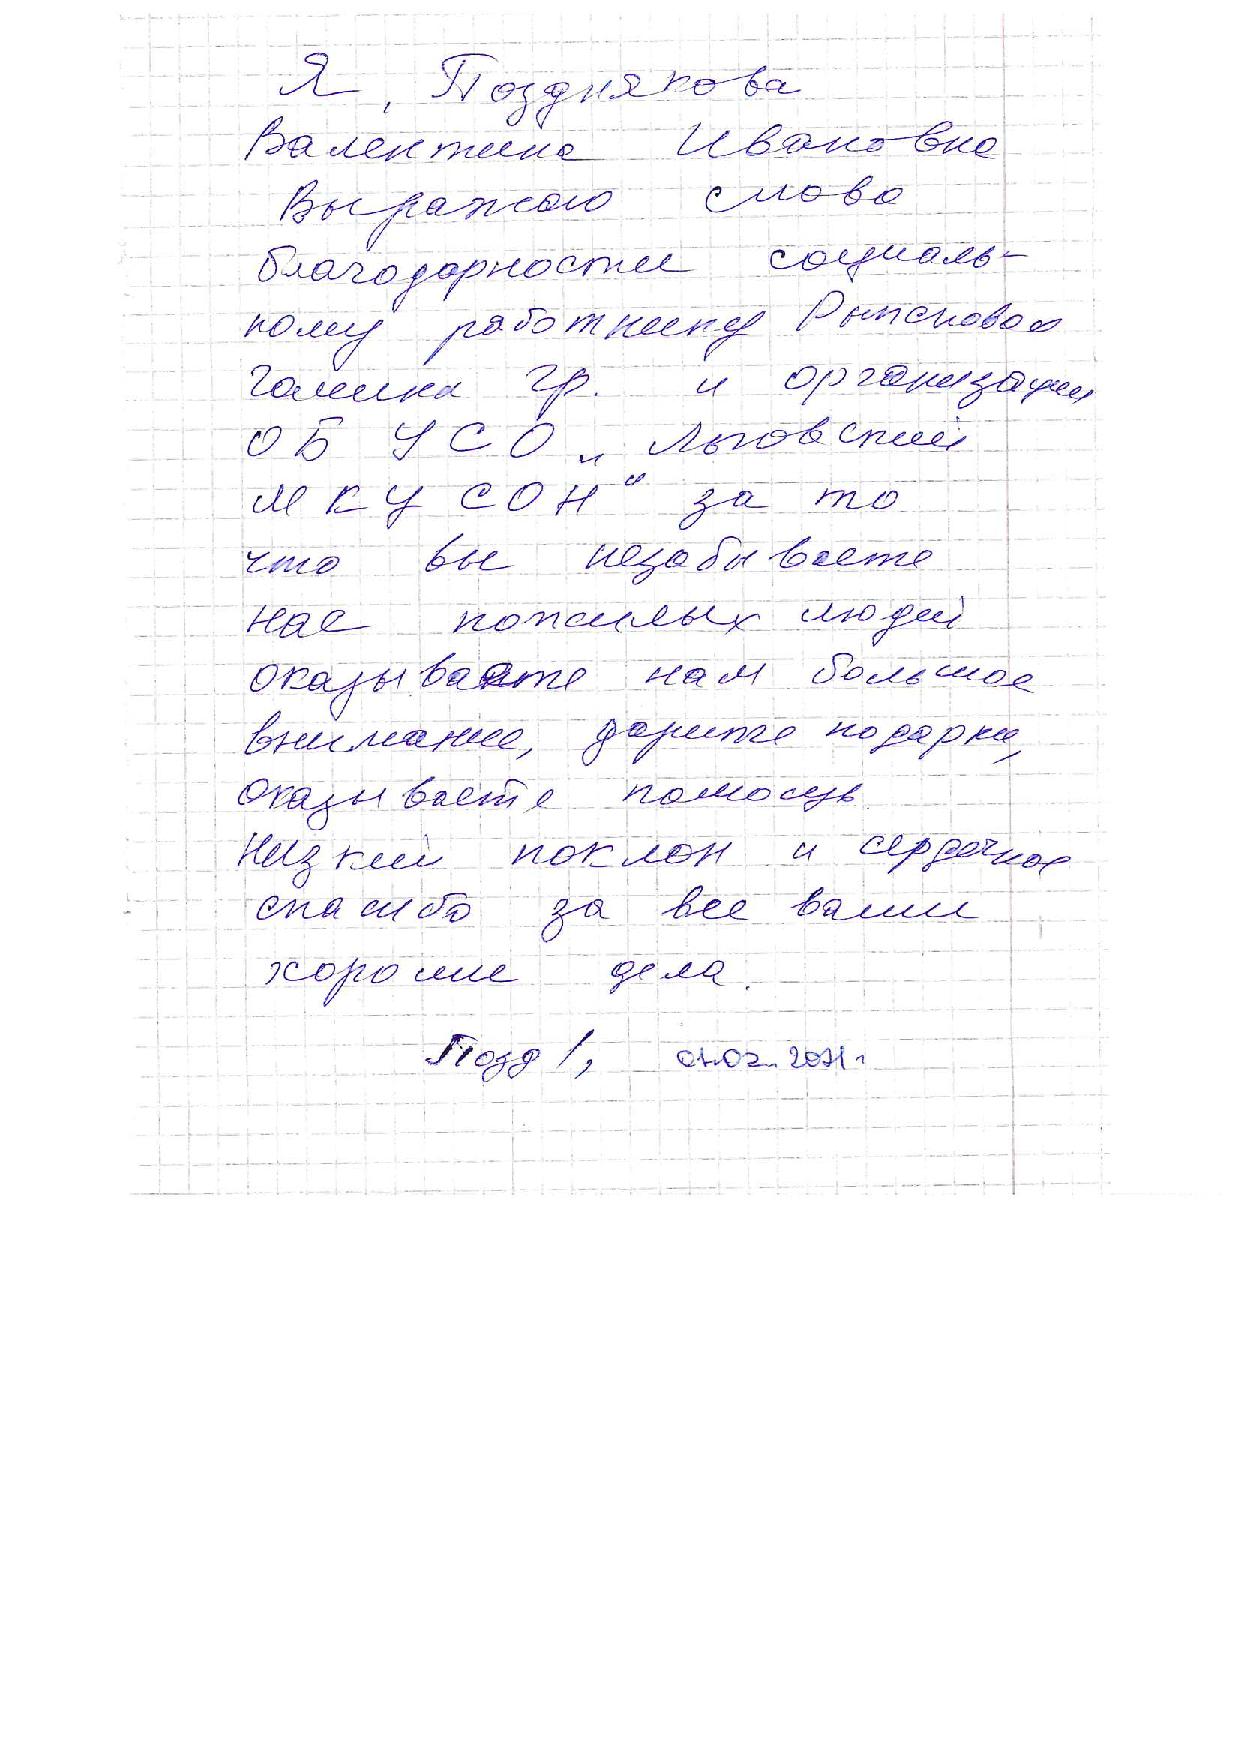 Я, Позднякова
Валентина Ивановна
Выражаю слова
благодарности социаль-
ному работнику
Галина Гр. и организации
ОБУСО „Льговский
МКУСОН“ за то
что вы незабываете
нас пожилых людей
оказываете нам большое
внимание, дарите подарки,
оказываете помощь
Низкий поклон и сердечное
спасибо за все ваши
хорошие дела.
Позд /, 01.02.2021г.